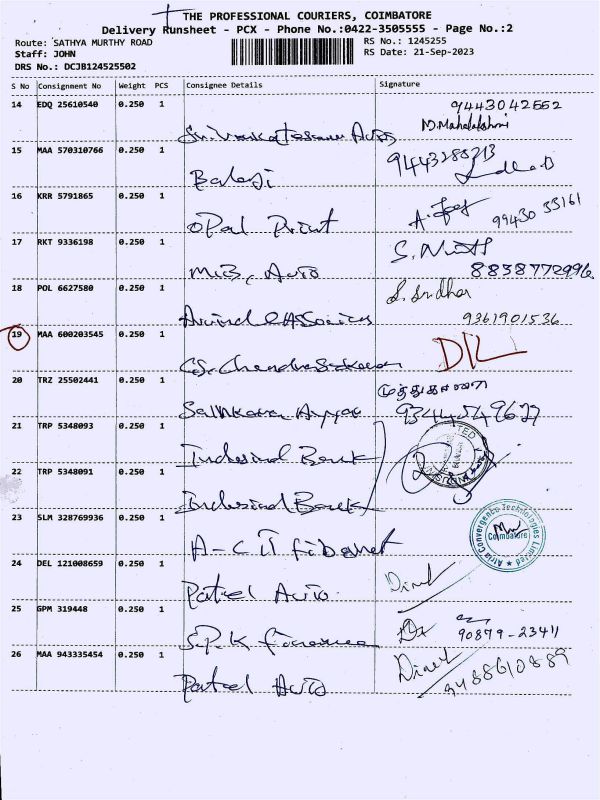 THE PROFESSIONAL COURIERS, COIMBATORE
Delivery Runsheet - PCX - Phone No.:0422-3505555 - Page No.:2
Route: SATHYA MURTHY ROAD
RS No.: 1245255
Staff: JOHN
RS Date: 21-Sep-2023
DRS No.: DCJB124525502
S No Consignment No Weight PCS Consignee Details Signature
14 EDQ 25610540 0.250 1 9443042552
M.Mahalakshmi
Sri Venkateswara Autos
15 MAA 570310766 0.250 1
Balaji
16 KRR 5791865 0.250 1 99430 33161
Opal Print
17 RKT 9336198 0.250 1
M.B. Auto 8838772996
18 POL 6627580 0.250 1 S. Sridhar
Arvind & Associates 9361901536
19 MAA 600203545 0.250 1
DIL
20 TRZ 25502441 0.250 1
Sankara Ayyar
21 TRP 5348093 0.250 1
Indusind Bank
22 TRP 5348091 0.250 1
Indusind Bank
23 SLM 328769936 0.250 1 Atria Convergence Technologies Limited
Coimbatore
24 DEL 121008659 0.250 1 Direct
Patel Auto.
25 GPM 319448 0.250 1
S.P.K finance 90879-23411
26 MAA 943335454 0.250 1 Direct
Patel Auto 9488610889